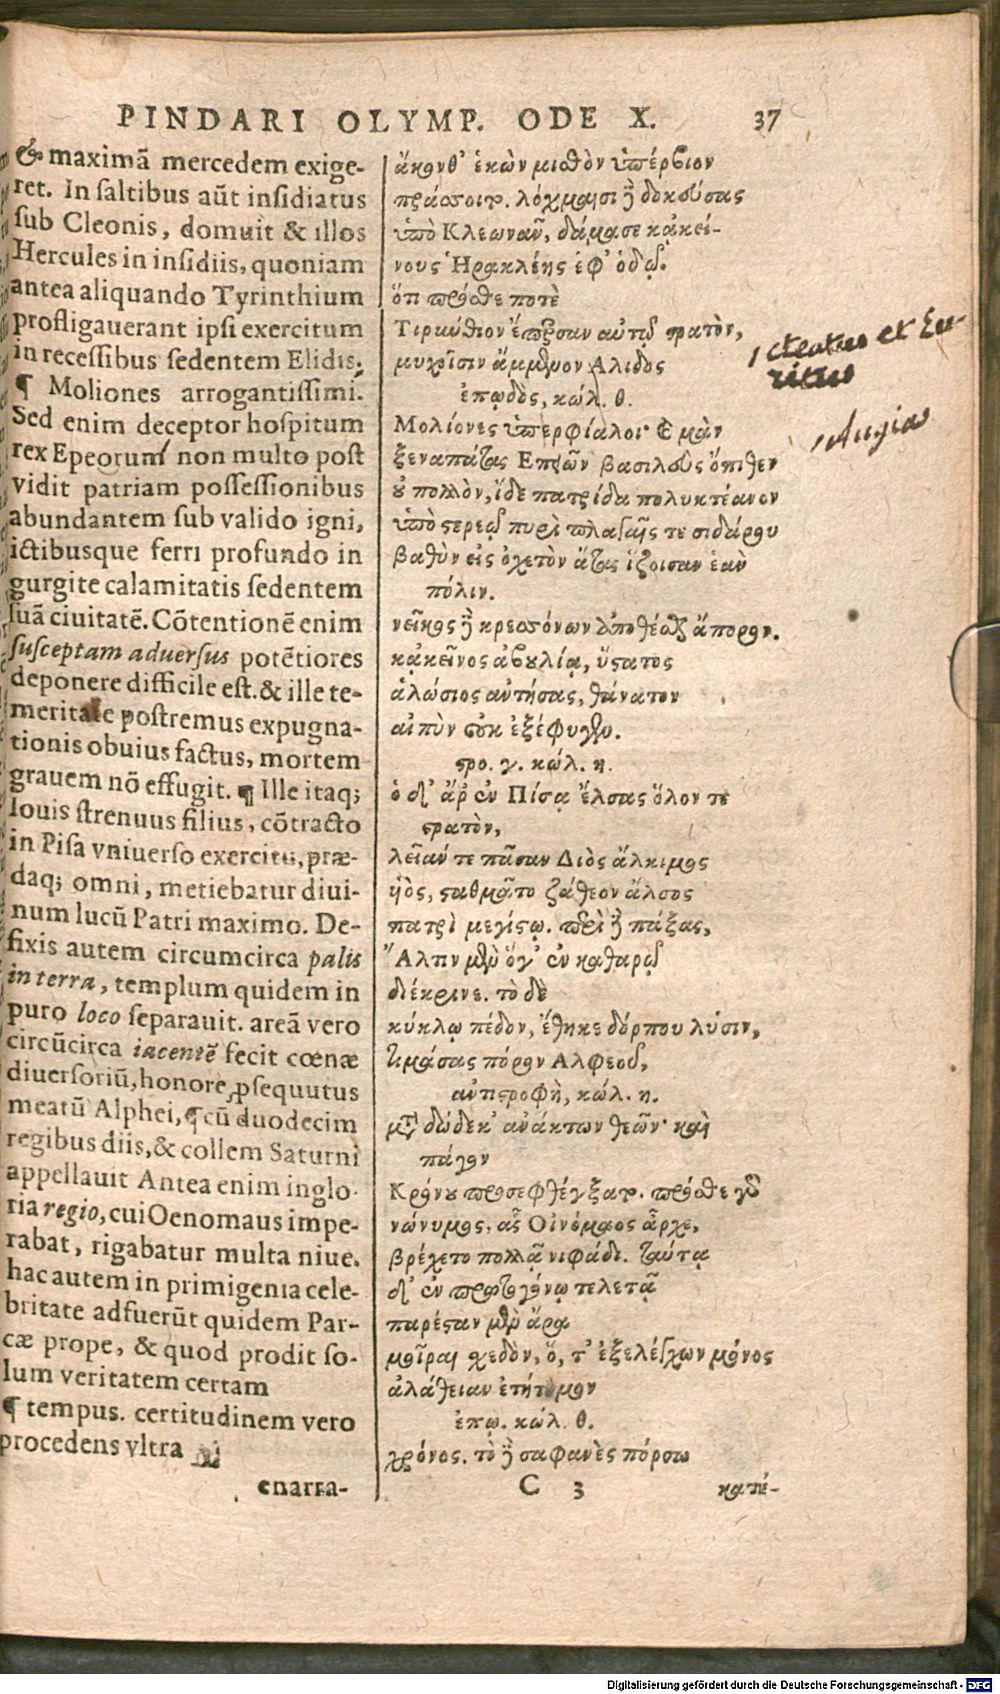 PINDARI OLYMP. ODE X. 37
& maximã mercedem exige-
ret. In saltibus aũt insidiatus
sub Cleonis, domuit & illos
Hercules in insidiis, quoniam
antea aliquando Tyrinthium
profligauerant ipsi exercitum
in recessibus sedentem Elidis,
¶ Moliones arrogantissimi.
Sed enim deceptor hospitum
rex Epeorum non multo post
vidit patriam possessionibus
abundantem sub valido igni,
ictibusque ferri profundo in
gurgite calamitatis sedentem
suã ciuitatẽ. Cõtentionẽ enim
susceptam aduersus potẽtiores
deponere difficile est. & ille te-
meritate postremus expugna-
tionis obuius factus, mortem
grauem nõ effugit. ¶ Ille itaq;
Iouis strenuus filius, cõtracto
in Pisa vniuerso exercitu, præ-
daq; omni, metiebatur diui-
num lucũ Patri maximo. De-
fixis autem circumcirca palis
in terra, templum quidem in
puro loco separauit. areã vero
circũcirca iacentẽ fecit cœnæ
diuersoriũ, honore ꝓsequutus
meatũ Alphei, ¶ cũ duodecim
regibus diis, & collem Saturni
appellauit Antea enim inglo-
ria regio, cui Oenomaus impe-
rabat, rigabatur multa niue.
hac autem in primigenia cele-
britate adfuerũt quidem Par-
cæ prope, & quod prodit so-
lum veritatem certam
¶ tempus. certitudinem vero
procedens vltra
enarra-
ἄκονθ' ἑκὼν μισθὸν ὑπέρβιον
πράσσοιτ. λόχμαισι ἢ δοκεύσας
ὑπὸ Κλεωνᾶν, δάμασε κἀκεί-
νους Ἡρακλέης ἐφ' ὁδῷ.
ὅτι πρόσθε ποτὲ
Τιρύνθιον ἔπερσαν αὐτῷ στρατὸν,
μυχοῖσιν ἅμμενον Αλιδος
ἐπῳδὸς, κώλ. θ.
Μολίονες ὑπερφίαλοι· καὶ μὰν
ξεναπάτας Επειῶν βασιλεὺς ὄπιθεν
οὐ πολλὸν, ἴδε πατρίδα πολυκτέανον
ὑπὸ στερεῷ πυρὶ πλαγαῖς τε σιδάρου
βαθὺν εἰς ὀχετὸν ἄτας ἵζοισαν ἑὰν
πόλιν.
νεῖκος δὲ κρεσσόνων ἀποθέσθαι ἄπορον.
κἀκεῖνος ἀβουλίᾳ, ὕστατος
ἁλώσιος ἀντήσας, θάνατον
αἰπὺν οὐκ ἐξέφυγεν.
στρο. γ. κώλ. η.
ὁ δ' ἄρ' ἐν Πίσᾳ ἔλσας ὅλον τε
στρατὸν,
λείαν τε πᾶσαν Διὸς ἄλκιμος
ὑὸς, σταθμᾶτο ζάθεον ἄλσος
πατρὶ μεγίστῳ. περὶ δὲ πάξας,
Ἄλτιν μὲν ὅγ' ἐν καθαρῷ
διέκρινε. τὸ δὲ
κύκλῳ πέδον, ἔθηκε δόρπου λύσιν,
τιμάσας πόρον Αλφεοῦ,
ἀντιστροφὴ, κώλ. η.
μετὰ δώδεκ' ἀνάκτων θεῶν· καὶ
πάγον
Κρόνου προσεφθέγξατ. πρόσθε γὰρ
νώνυμος, ἇς Οἰνόμαος ἆρχε,
βρέχετο πολλᾷ νιφάδι. ταύτᾳ
δ' ἐν πρωτογόνῳ τελετᾷ
παρέσταν μὲν ἄρα
μοῖραι σχεδὸν, ὅ, τ' ἐξελέγχων μόνος
ἀλάθειαν ἐτήτυμον
ἐπῳ. κώλ. θ.
χρόνος. τὸ δὲ σαφανὲς πόρσω
C 3 κατέ-
cteatus et Eu-
ritus
Augias
Digitalisierung gefördert durch die Deutsche Forschungsgemeinschaft - DFG